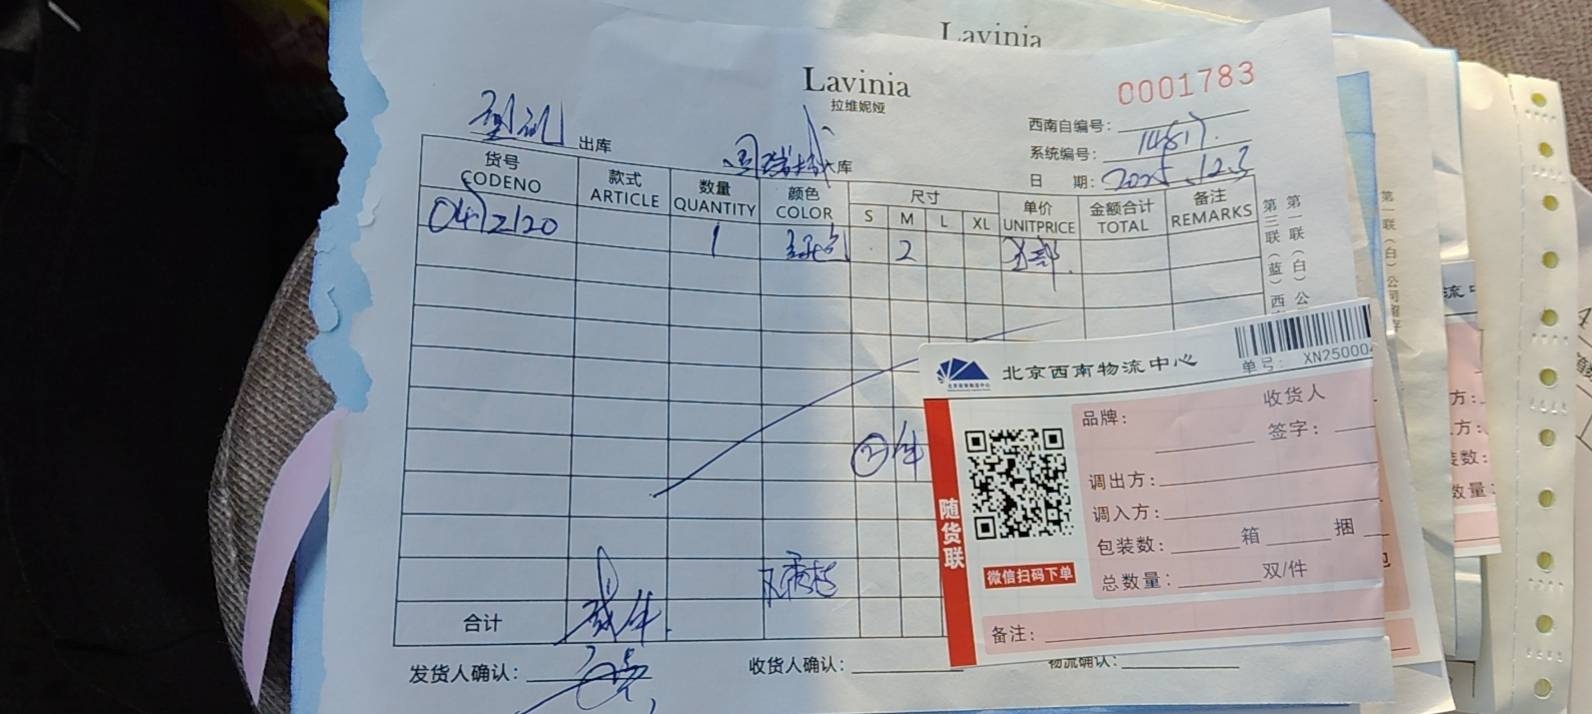 Lavinia
Lavinia
拉维妮娅
0001783
西南自编号:
系统编号: 14517.
日 期: 2025.12.3
出库
库
货号 CODENO
款式 ARTICLE
数量 QUANTITY
颜色 COLOR
尺寸
S M L XL
单价 UNITPRICE
金额合计 TOTAL
备注 REMARKS
1 2
②件
合计 贰件.
发货人确认:
收货人确认:
物流确认:
第一联(白)公
第三联(蓝)西
第一联(白)公司留存
北京西南物流中心
单号: XN25000
随货联
微信扫码下单
品牌:
收货人
签字:
调出方:
调入方:
包装数: 箱 捆
总数量: 双/件
备注:
流中
方:
方:
装数:
数量: